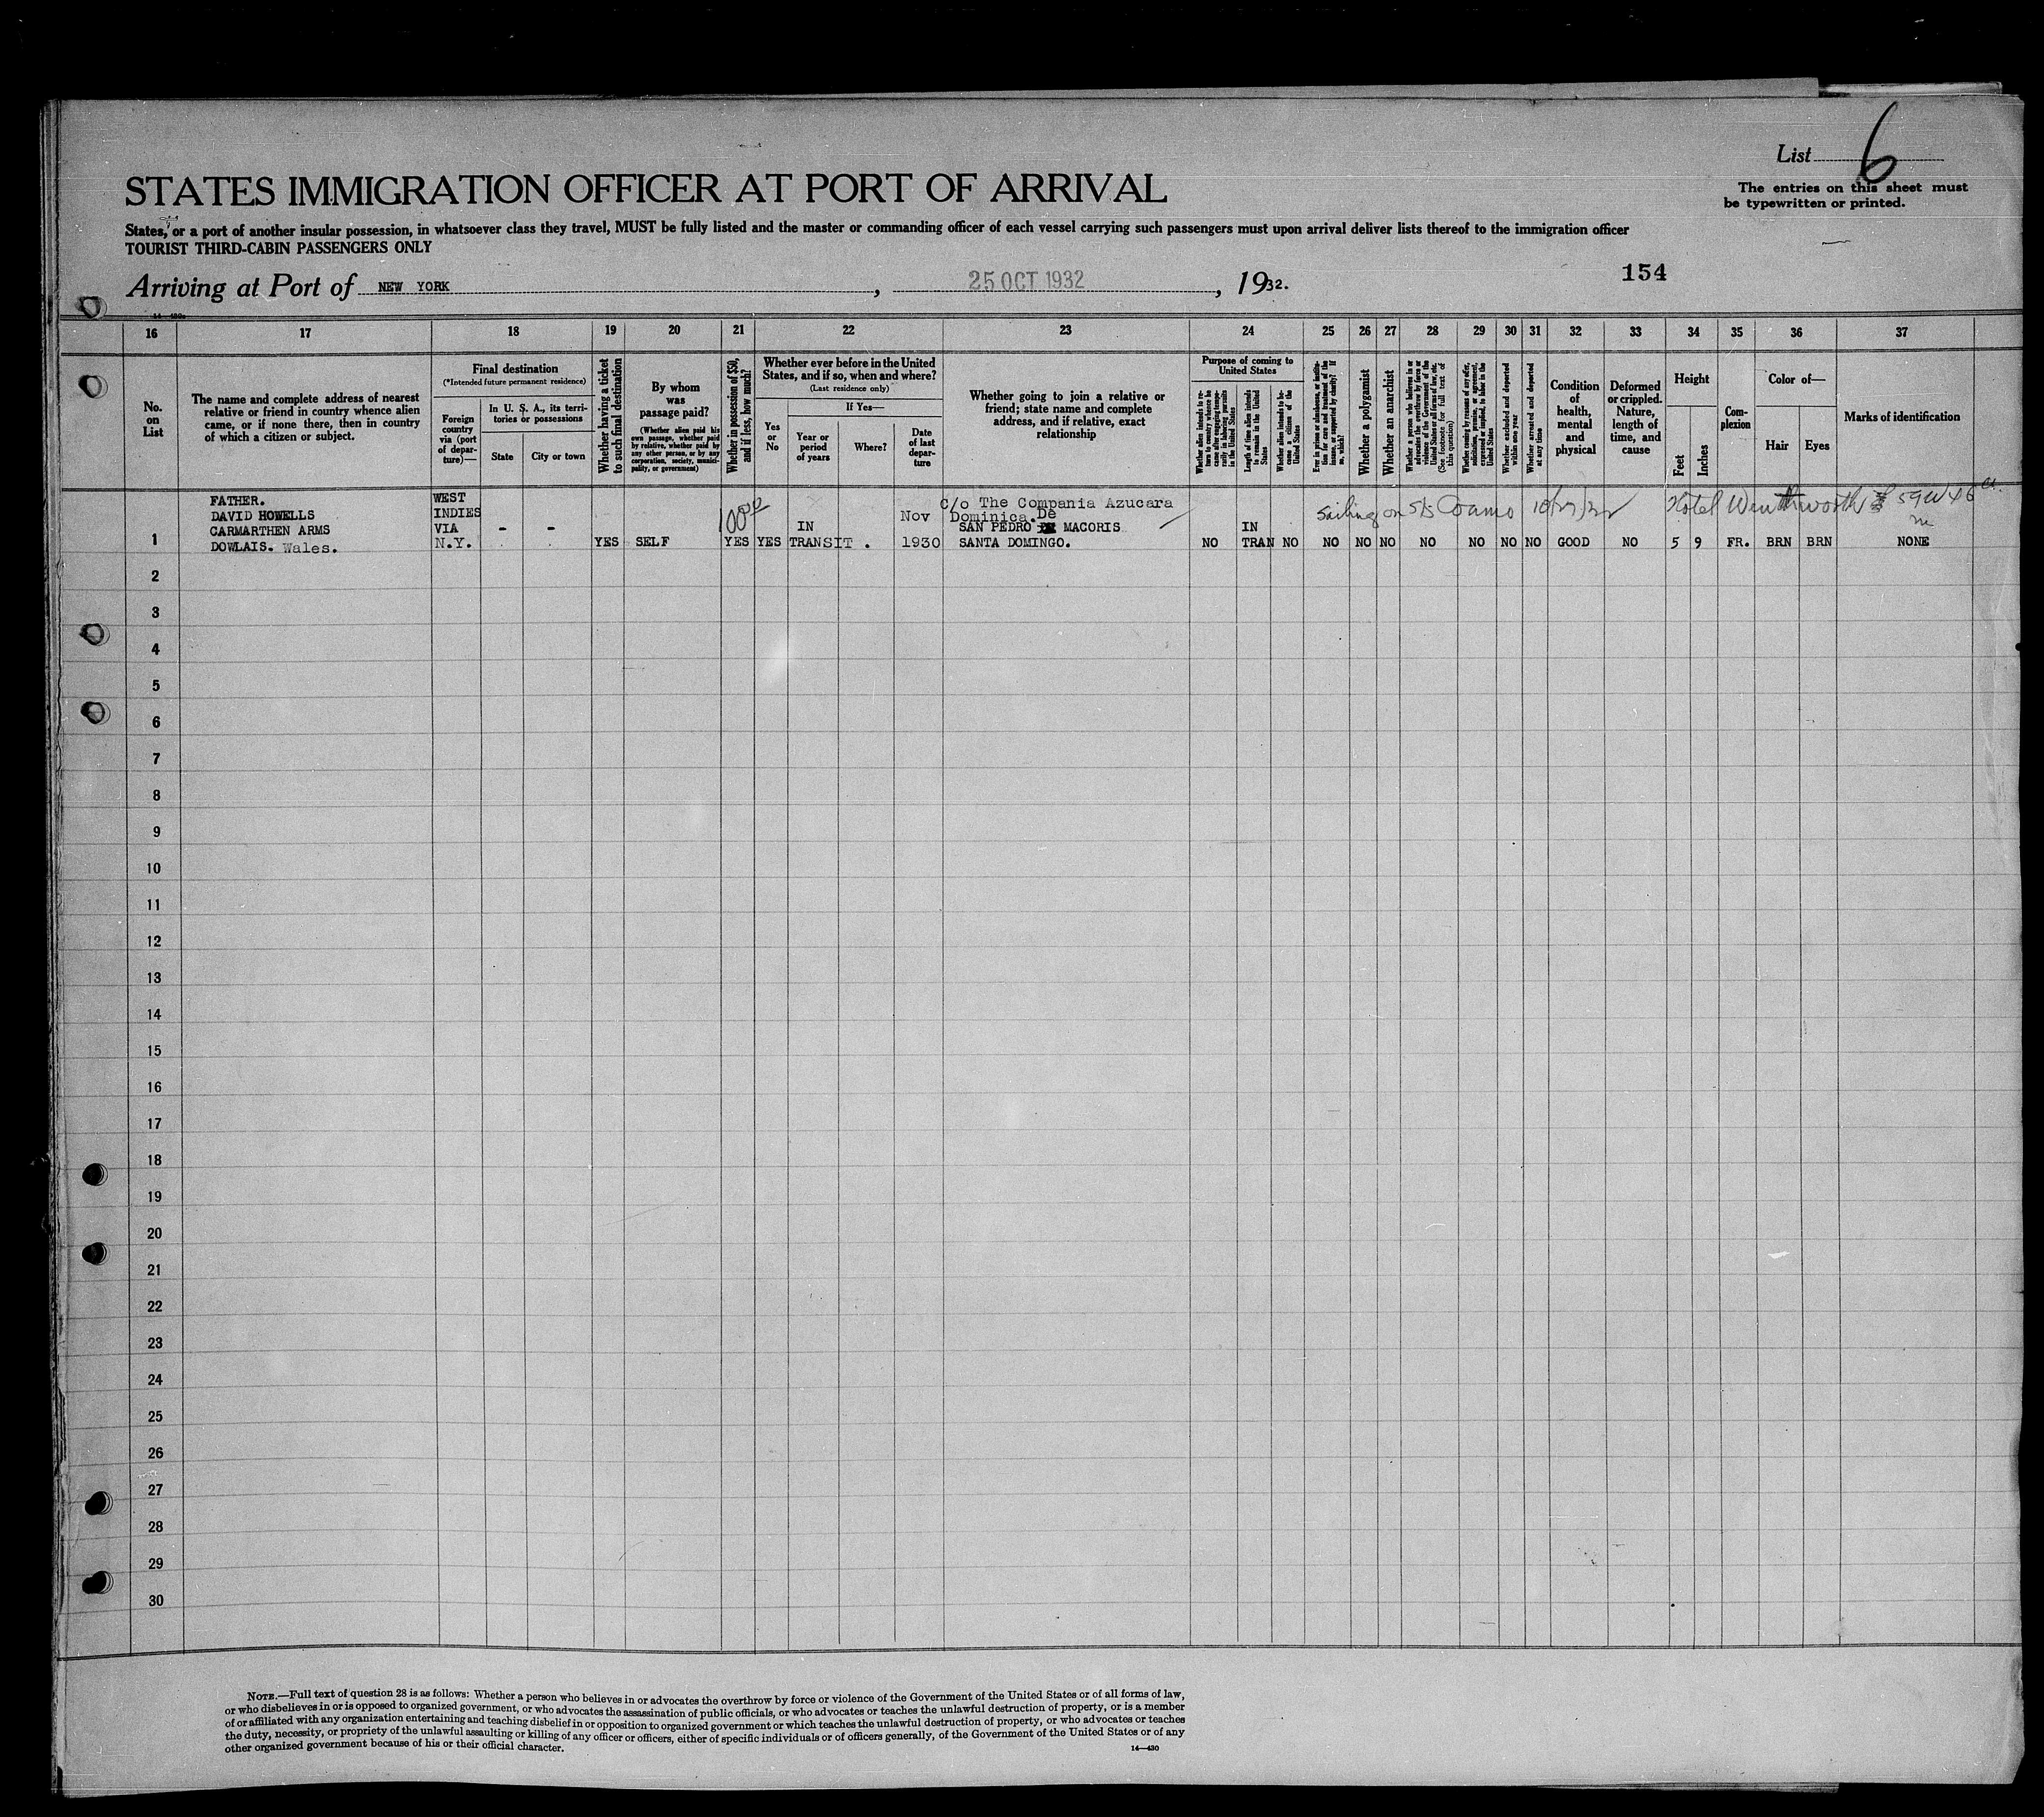 List 6
The entries on this sheet must
be typewritten or printed.
STATES IMMIGRATION OFFICER AT PORT OF ARRIVAL
States, or a port of another insular possession, in whatsoever class they travel, MUST be fully listed and the master or commanding officer of each vessel carrying such passengers must upon arrival deliver lists thereof to the immigration officer
TOURIST THIRD-CABIN PASSENGERS ONLY
Arriving at Port of NEW YORK, 25 OCT 1932, 1932.
154
16 17 18 19 20 21 22 23 24 25 26 27 28 29 30 31 32 33 34 35 36 37
No.
on
List
The name and complete address of nearest
relative or friend in country whence alien
came, or if none there, then in country
of which a citizen or subject.
Final destination
(*Intended future permanent residence)
Foreign
country
via (port
of depar-
ture)—
In U. S. A., its terri-
tories or possessions
State
City or town
Whether having a ticket
to such final destination
By whom
was
passage paid?
(Whether alien paid his
own passage, whether paid
by relative, whether paid by
any other person, or by any
corporation, society, munici-
pality, or government)
Whether in possession of $50,
and if less, how much?
Whether ever before in the United
States, and if so, when and where?
(Last residence only)
Yes
or
No
If Yes—
Year or
period
of years
Where?
Date
of last
depar-
ture
Whether going to join a relative or
friend; state name and complete
address, and if relative, exact
relationship
Purpose of coming to
United States
Whether alien intends to re-
turn to country whence he
came after engaging tempo-
rarily in laboring pursuits
in the United States
Length of time alien intends
to remain in the United
States
Whether alien intends to be-
come a citizen of the
United States
Ever in prison or almshouse, or institu-
tion for care and treatment of the
insane, or supported by charity? If
so, which?
Whether a polygamist
Whether an anarchist
Whether a person who believes in or
advocates the overthrow by force or
violence of the Government of the
United States or all forms of law, etc.
(See footnote for full text of
this question)
Whether coming by reason of any offer,
solicitation, promise, or agreement,
expressed or implied, to labor in the
United States
Whether excluded and deported
within one year
Whether arrested and deported
at any time
Condition
of
health,
mental
and
physical
Deformed
or crippled.
Nature,
length of
time, and
cause
Height
Feet
Inches
Com-
plexion
Color of—
Hair
Eyes
Marks of identification
FATHER.
DAVID HOWELLS
CARMARTHEN ARMS
DOWLAIS. Wales.
WEST
INDIES
VIA
N.Y.
- -
YES SELF
100
YES YES IN
TRANSIT .
Nov
1930
c/o The Compania Azucara
Dominica. De
SAN PEDRO MACORIS
SANTA DOMINGO.
NO IN
TRAN NO
Sailing on S/S Coamo 10/27/32
Hotel Wentworth 59 W 46 St.
NO NO NO NO NO NO NO GOOD NO 5 9 FR. BRN BRN NONE
1
2
3
4
5
6
7
8
9
10
11
12
13
14
15
16
17
18
19
20
21
22
23
24
25
26
27
28
29
30
NOTE.—Full text of question 28 is as follows: Whether a person who believes in or advocates the overthrow by force or violence of the Government of the United States or of all forms of law,
or who disbelieves in or is opposed to organized government, or who advocates the assassination of public officials, or who advocates or teaches the unlawful destruction of property, or is a member
of or affiliated with any organization entertaining and teaching disbelief in or opposition to organized government or which teaches the unlawful destruction of property, or who advocates or teaches
the duty, necessity, or propriety of the unlawful assaulting or killing of any officer or officers, either of specific individuals or of officers generally, of the Government of the United States or of any
other organized government because of his or their official character.
14—430